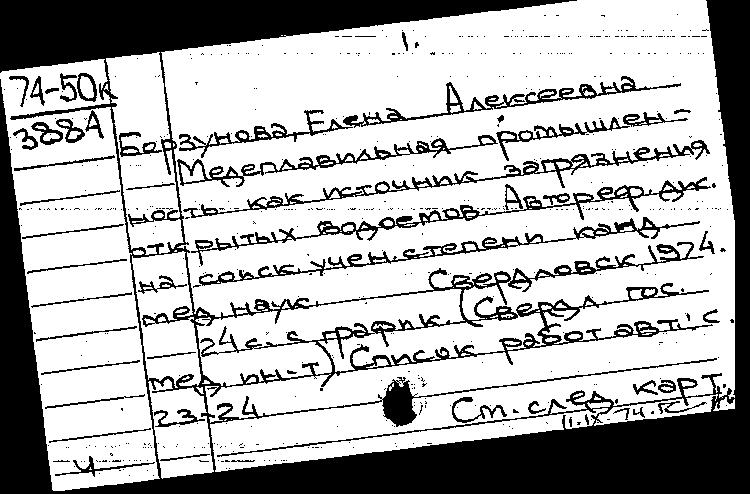 1.
74-50к
388А
Борзунова, Елена Алексеевна
Медеплавильная промышлен-
ность как источник загрязнения
открытых водоемов. Автореф. дис.
на соиск. учен. степени канд.
мед. наук. Свердловск, 1974.
24 с. с график. (Свердл. гос.
мед. ин-т). Список работ авт.: с.
23-24.
Ст. след. карт.
11.IX 74.
ч